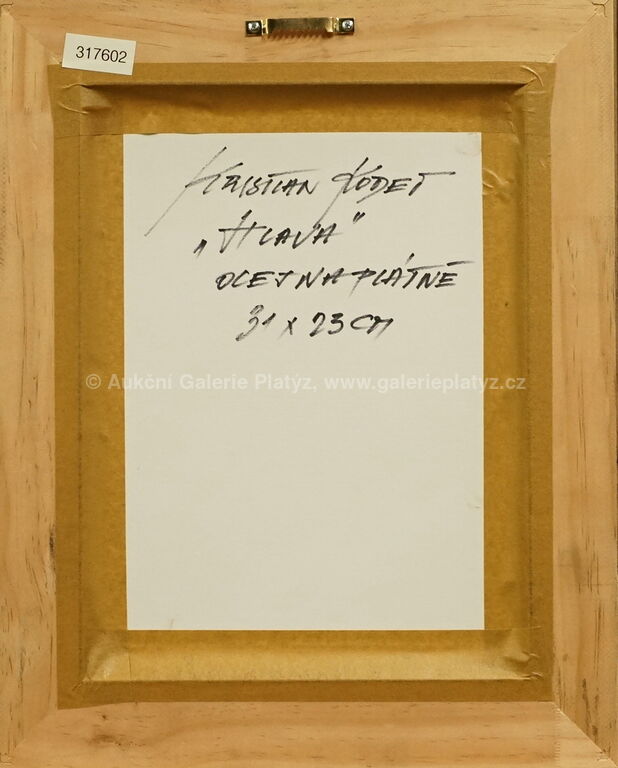 317602
KRISTIAN KODET
„HLAVA"
OLEJ NA PLÁTNĚ
31 x 23 CM
© Aukční Galerie Platýz, www.galerieplatyz.cz